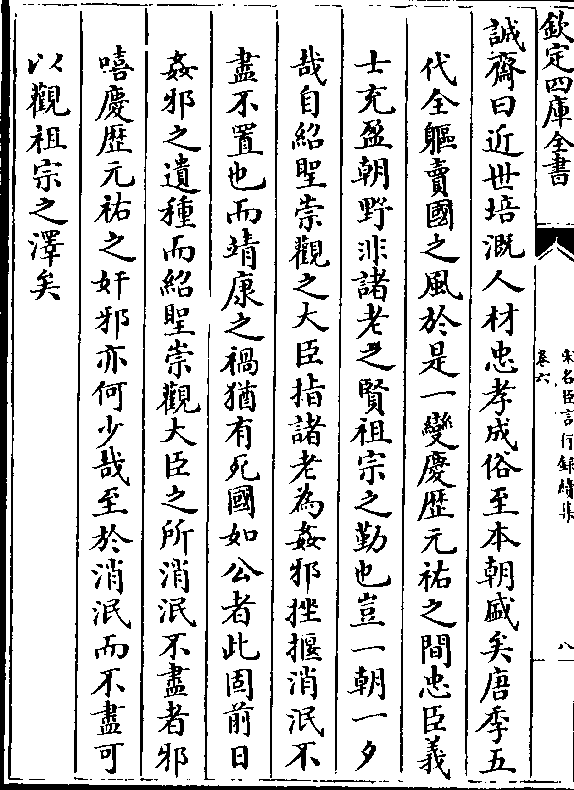 欽定四庫全書
宋名臣言行錄續集
卷六
八
誠齋曰近世培溉人材忠孝成俗至本朝盛矣唐季五
代全軀賣國之風於是一變慶歴元祐之間忠臣義
士充盈朝野非諸老之賢祖宗之勤也豈一朝一夕
哉自紹聖崇觀之大臣指諸老為姦邪挫揠消泯不
盡不置也而靖康之禍猶有死國如公者此固前日
姦邪之遺種而紹聖崇觀大臣之所消泯不盡者邪
嘻慶歴元祐之奸邪亦何少哉至於消泯而不盡可
以觀祖宗之澤矣